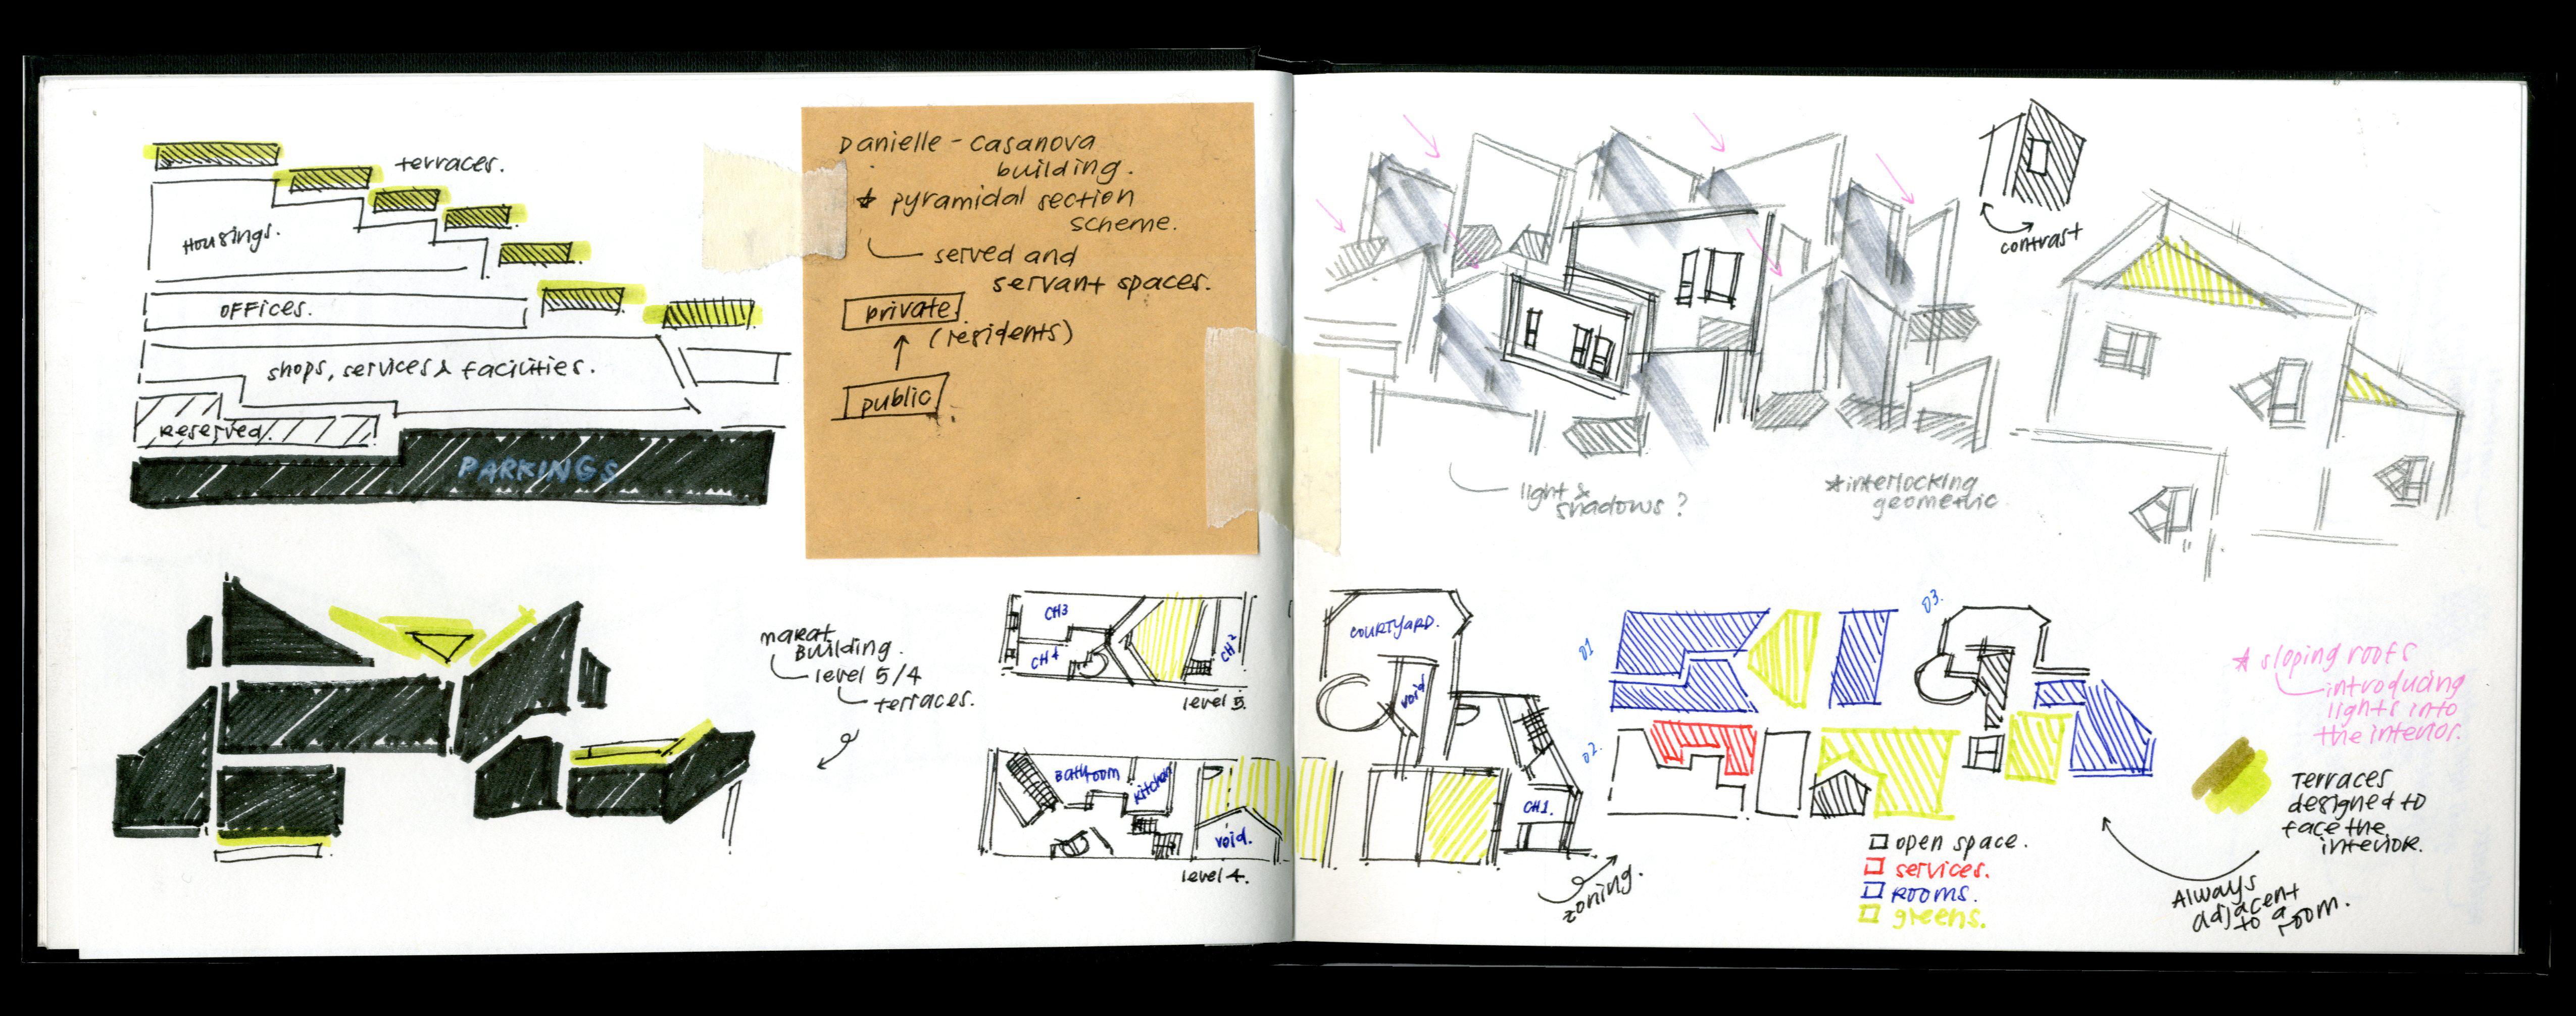 terraces.
Housings.
offices.
shops, services & facilities.
Reserved.
PARKINGS
Danielle - Casanova
building.
* pyramidal section
scheme.
served and
servant spaces.
private
(residents)
public
contrast
light &
shadows ?
*interlocking
geometric
marat
Building.
level 5/4
terraces.
CH3
CH4
CH2
level 5.
Bathroom
kitchen
void.
level 4.
courtyard.
void
CH1.
zoning.
01
02.
03.
open space.
services.
Rooms.
greens.
* sloping roofs
introducing
lights into
the interior.
Terraces
designed to
face the
interior.
Always
adjacent
to a
room.